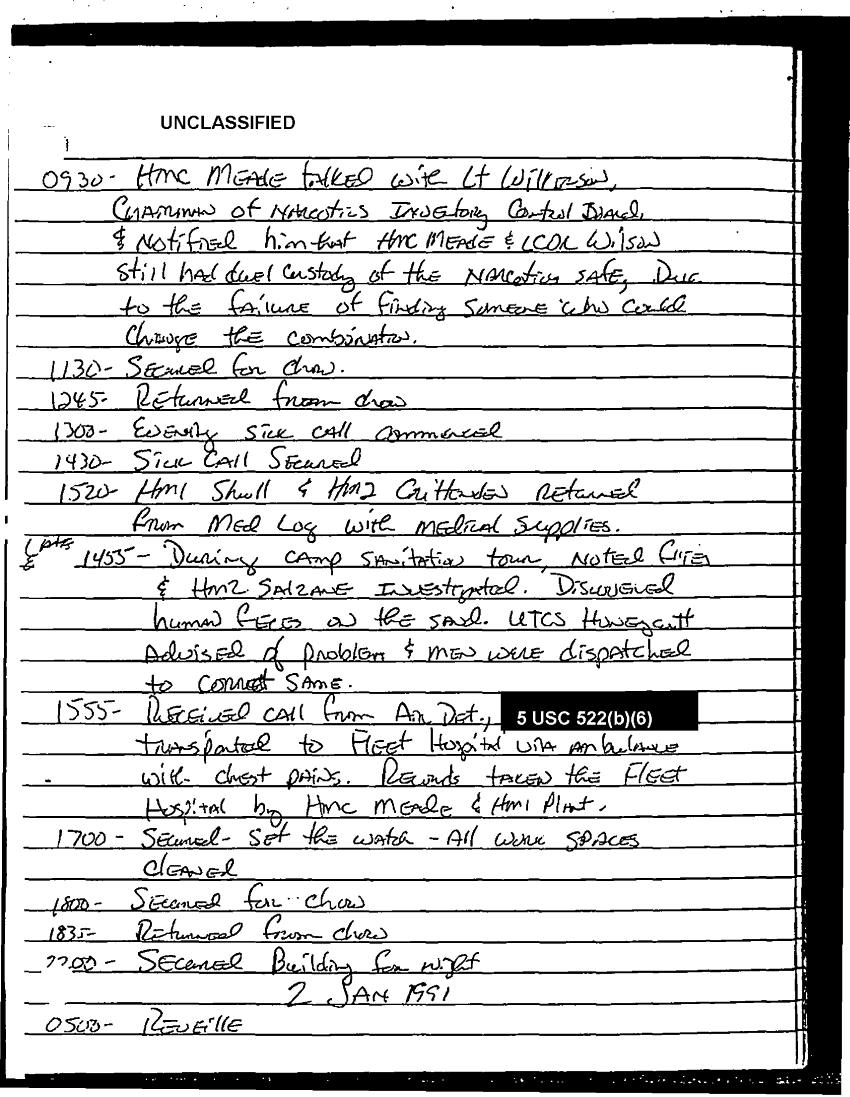 UNCLASSIFIED
0930- HMC MEADE talked with Lt Wilkerson,
Chairman of Narcotics Inventory Control Board,
& Notified him that HMC MEADE & LCDR Wilson
still had duel custody of the Narcotics safe, Due
to the failure of finding someone who could
change the combination.
1130- Secured for chow.
1245- Returned from chow
1300- Evening sick call commenced
1430- Sick Call Secured
1520- HM1 Shull & HM2 Crittenden Returned
from Med Log with medical supplies.
Late
E 1455- During camp sanitation tour, noted flies
& HM2 Salzane Investigated. Discovered
human feces on the sand. UTCS Huneycutt
Advised of problem & men were dispatched
to correct same.
1555- Received call from Air Det., 5 USC 522(b)(6)
transported to Fleet Hospital via ambulance
with chest pains. Records taken the Fleet
Hospital by HMC Meade & HM1 Plant.
1700- Secured- Set the watch - All work spaces
cleaned
1800- Secured for chow
1835- Returned from chow
2200- Secured Building for night
2 JAN 1991
0500- Reveille